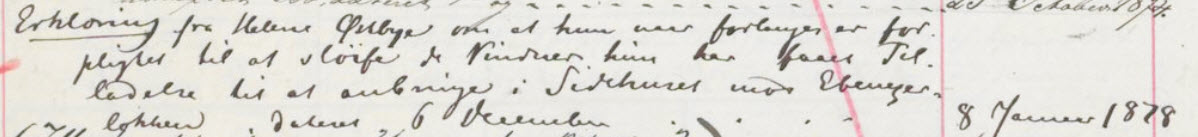 25 October 1874.
Erklæring fra Helene Østbye om at hun naar forlanges er for-
pligtet til at sløife de Vinduer hun har faaet Til-
ladelse til at anbringe i Sidehuset mod Ebenezer-
løkken, dateret 6 December . . . . 8 Januar 1878